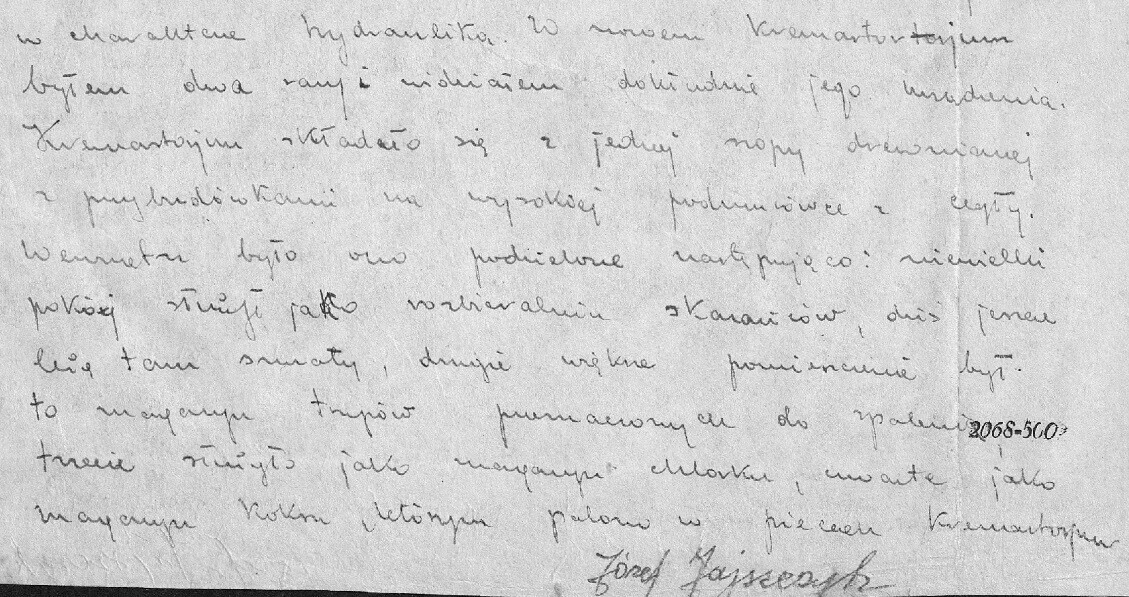 w charakterze hydraulika. W nowem Krematortorjum
byłem dwa razy i widziałem dokładnie jego urządzenia.
Krematorjum składało się z jednej szopy drewnianej
z przybudówkami na wysokiej podmurówce z cegły.
Wewnątrz było ono podzielone następująco: niewielki
pokój służył jako rozbieralnia skazańców, dziś jeszcze
leżą tam szmaty, drugie większe pomieszczenie był.
to magazyn trupów przeznaczonych do spalenia,
2068-500
trzecie służyło jako magazyn chlorku, czwarte jako
magazyn koksu, którym palono w piecach Krematorjum
Józef